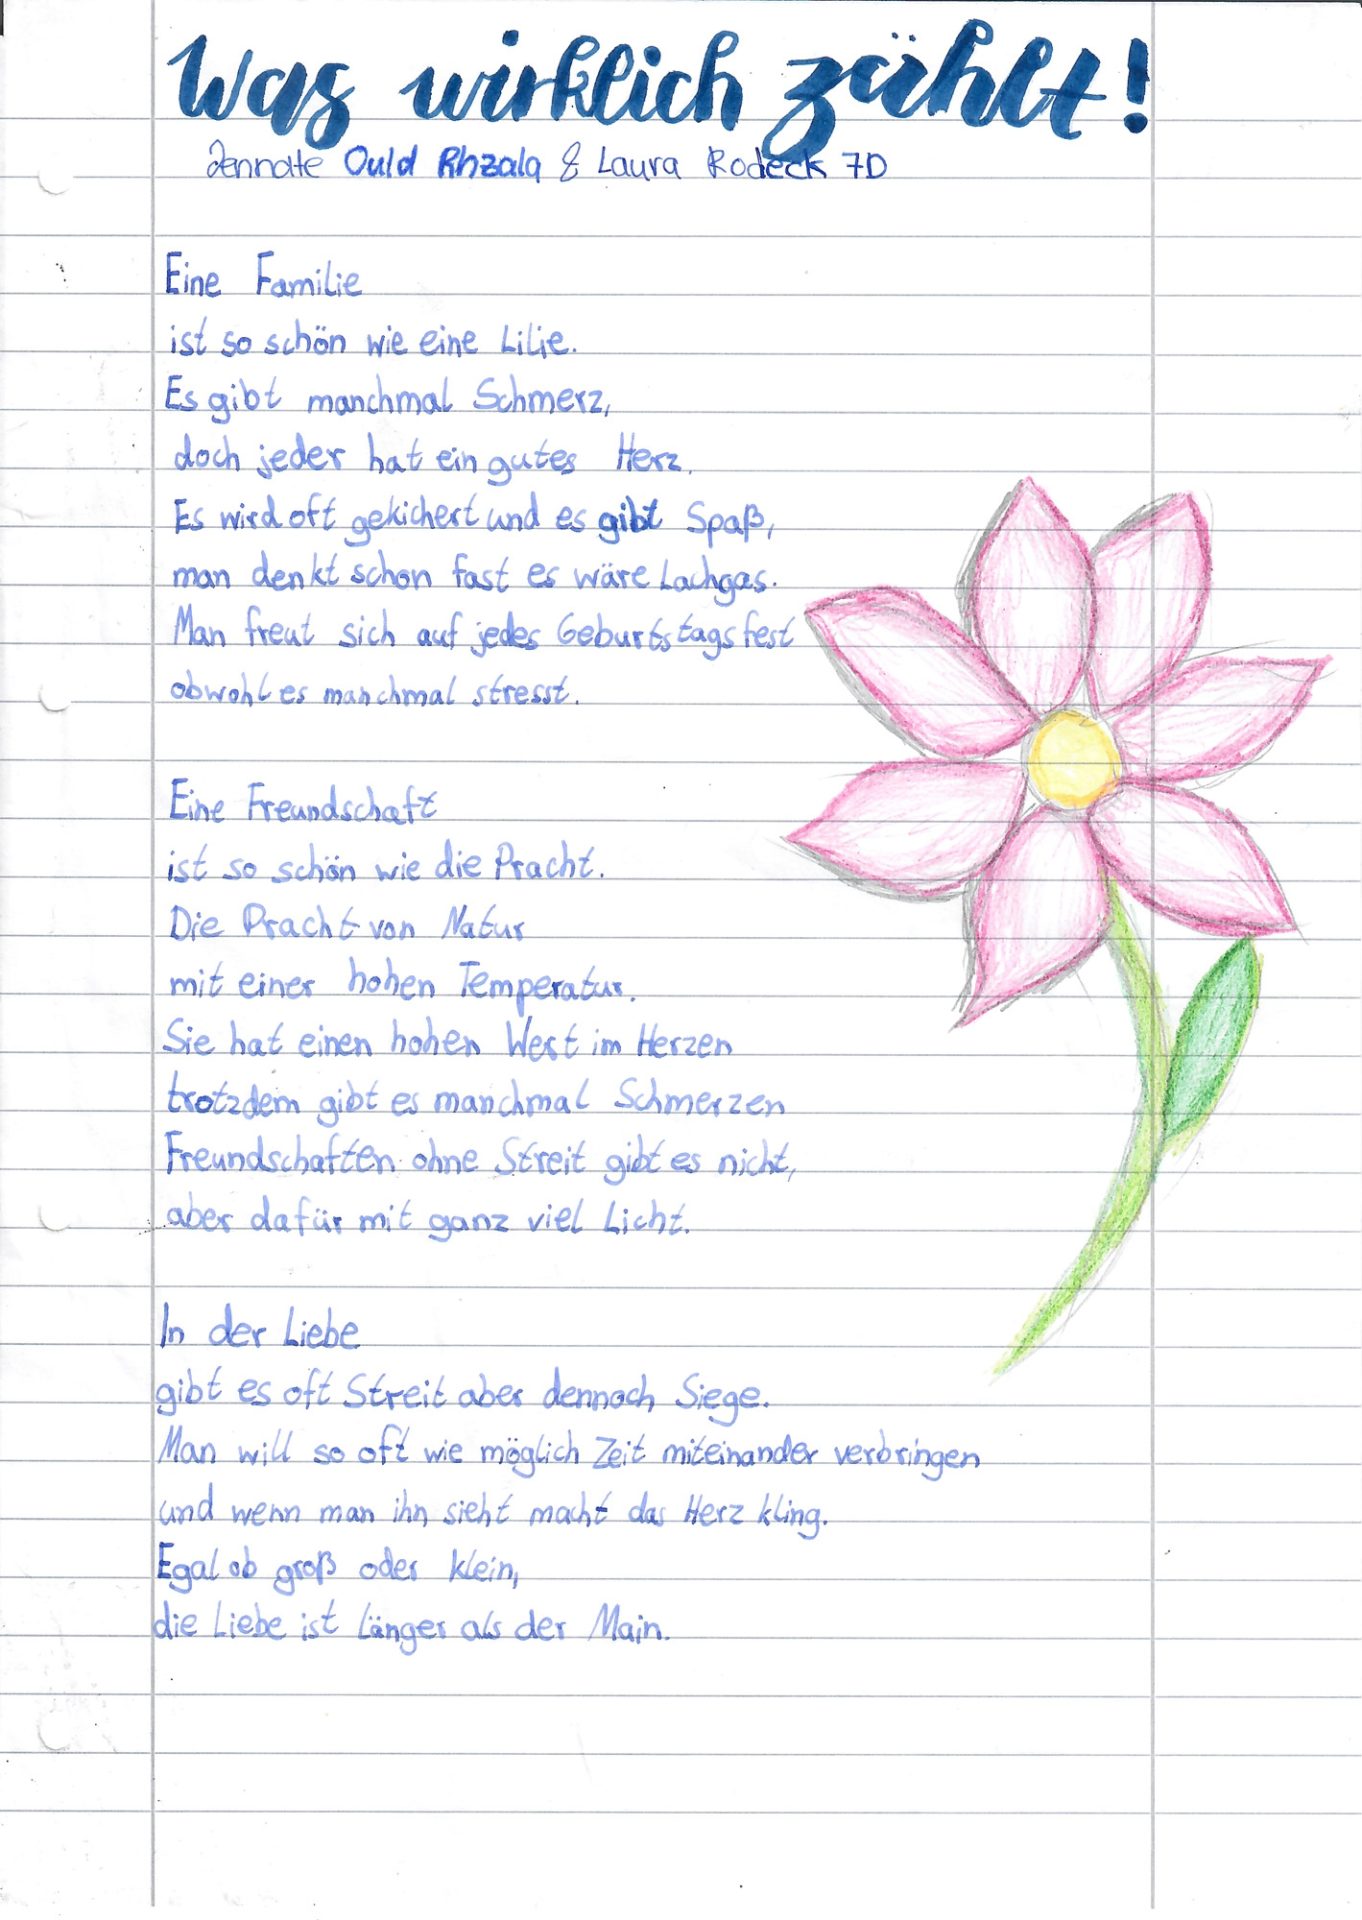 Was wirklich zählt!
Jennate Ould Rhzala & Laura Rodeck 7D
Eine Familie
ist so schön wie eine Lilie.
Es gibt manchmal Schmerz,
doch jeder hat ein gutes Herz.
Es wird oft gekichert und es gibt Spaß,
man denkt schon fast es wäre Lachgas.
Man freut sich auf jedes Geburtstagsfest
obwohl es manchmal stresst.
Eine Freundschaft
ist so schön wie die Pracht.
Die Pracht von Natur
mit einer hohen Temperatur.
Sie hat einen hohen Wert im Herzen
trotzdem gibt es manchmal Schmerzen
Freundschaften ohne Streit gibt es nicht,
aber dafür mit ganz viel Licht.
In der Liebe
gibt es oft Streit aber dennoch Siege.
Man will so oft wie möglich Zeit miteinander verbringen
und wenn man ihn sieht macht das Herz kling.
Egal ob groß oder klein,
die Liebe ist länger als der Main.